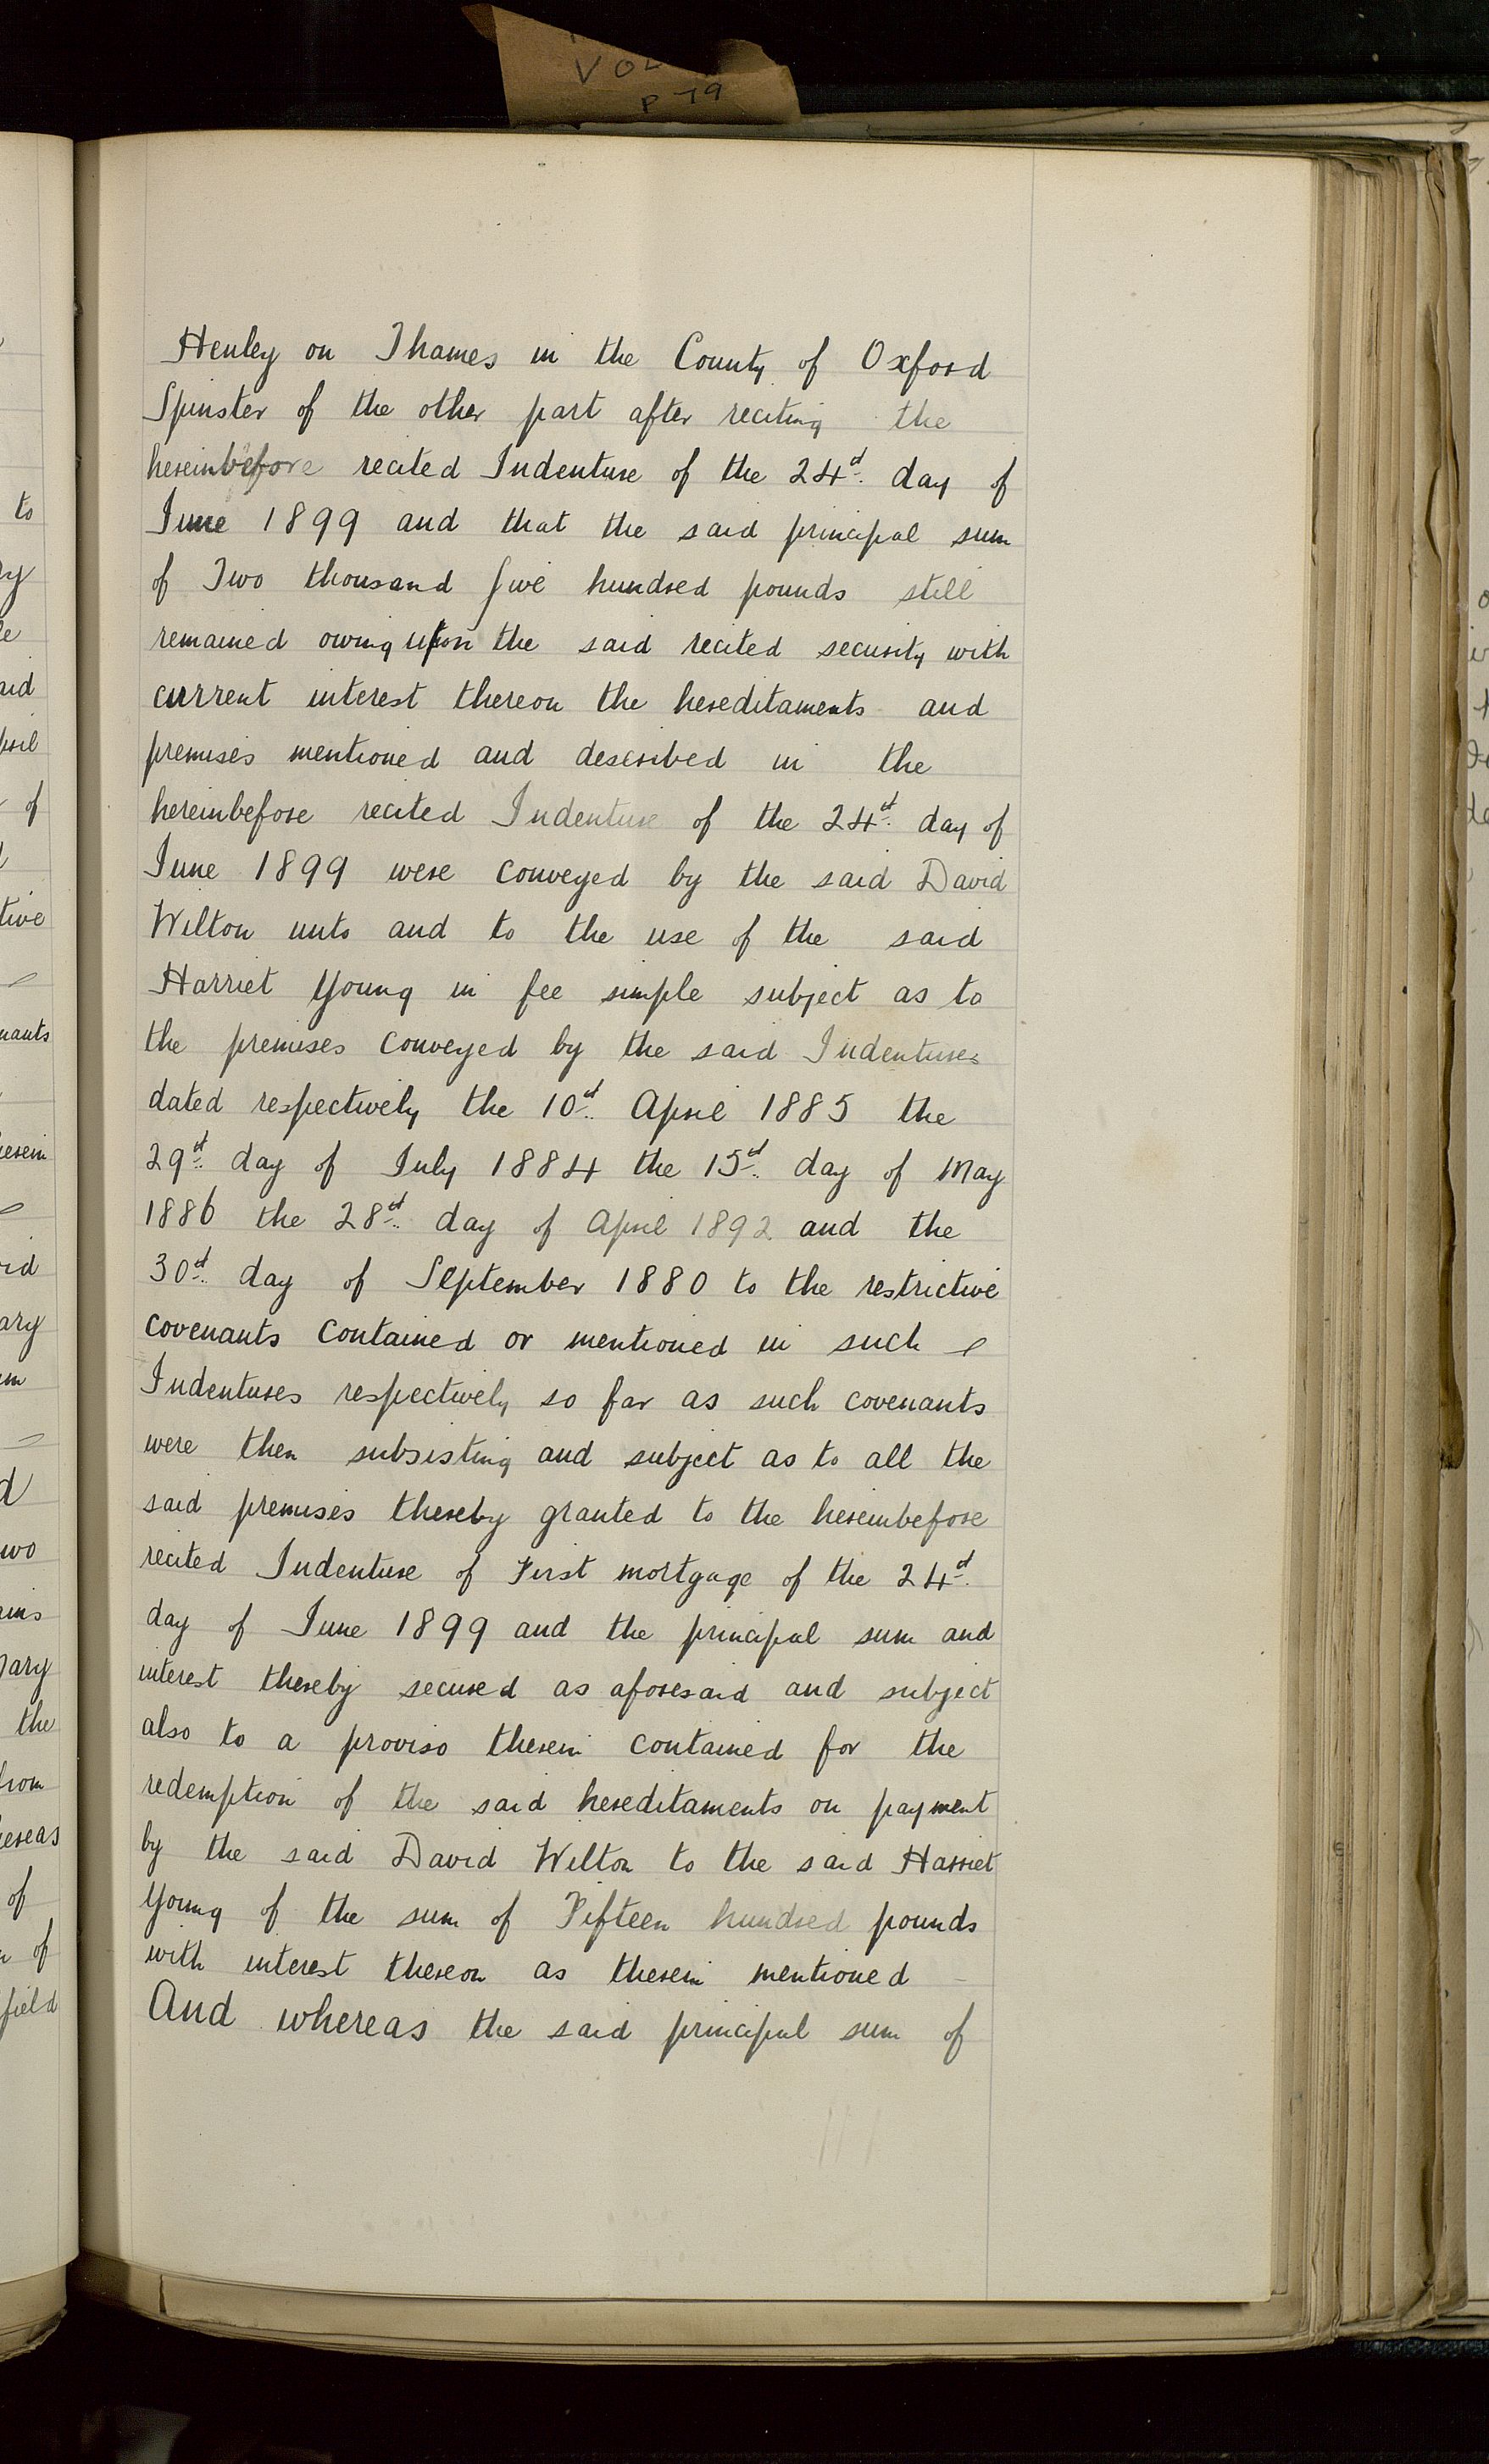 VOL
P 79
Henley on Thames in the County of Oxford
Spinster of the other part after reciting the
hereinbefore recited Indenture of the 24th day of
June 1899 and that the said principal sum
of Two thousand five hundred pounds still
remained owing upon the said recited security with
current interest thereon the hereditaments and
premises mentioned and described in the
hereinbefore recited Indenture of the 24th day of
June 1899 were conveyed by the said David
Wilton unto and to the use of the said
Harriet Young in fee simple subject as to
the premises conveyed by the said Indentures
dated respectively the 10th April 1885 the
29th day of July 1884 the 15th day of May
1886 the 28th day of April 1892 and the
30th day of September 1880 to the restrictive
covenants contained or mentioned in such
Indentures respectively so far as such covenants
were then subsisting and subject as to all the
said premises thereby granted to the hereinbefore
recited Indenture of First mortgage of the 24th
day of June 1899 and the principal sum and
interest thereby secured as aforesaid and subject
also to a proviso therein contained for the
redemption of the said hereditaments on payment
by the said David Wilton to the said Harriet
Young of the sum of Fifteen hundred pounds
with interest thereon as therein mentioned
And whereas the said principal sum of